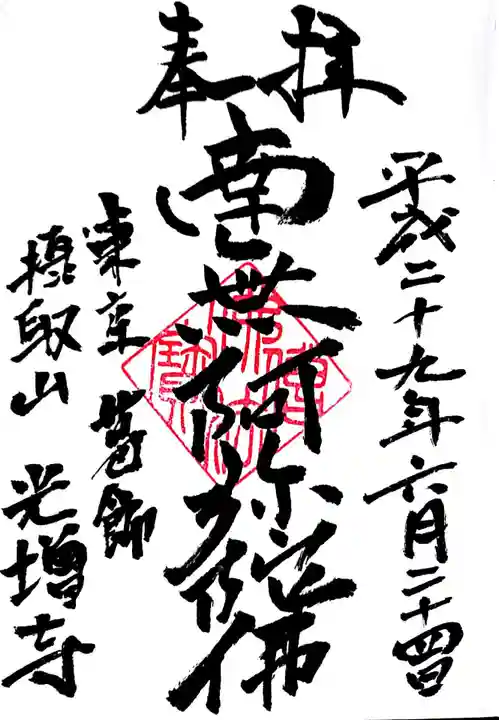 奉拝
平成二十九年六月二十四日
南無阿弥陀佛
東京 葛飾
摂取山 光増寺